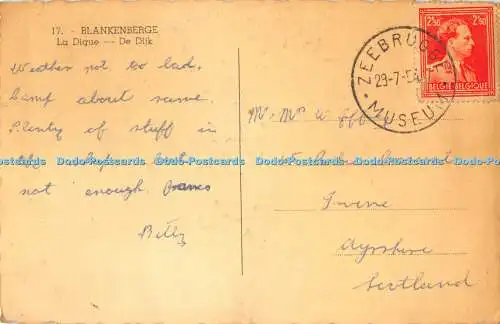 17. - BLANKENBERGE
La Digue — De Dijk
Weather not so bad.
Camp about same.
Plenty of stuff in
but
not enough francs
Betty
ZEEBRUGGE
29-7-54
MUSEUM
2F50 2F50
BELGIE-BELGIQUE
Mr. Mrs W
Irvine
Ayrshire
Scotland
Dodo-Postcards Dodo-Postcards Dodo-Postcards Dodo-Postcards Dodo-Postcards Dodo-Postcards